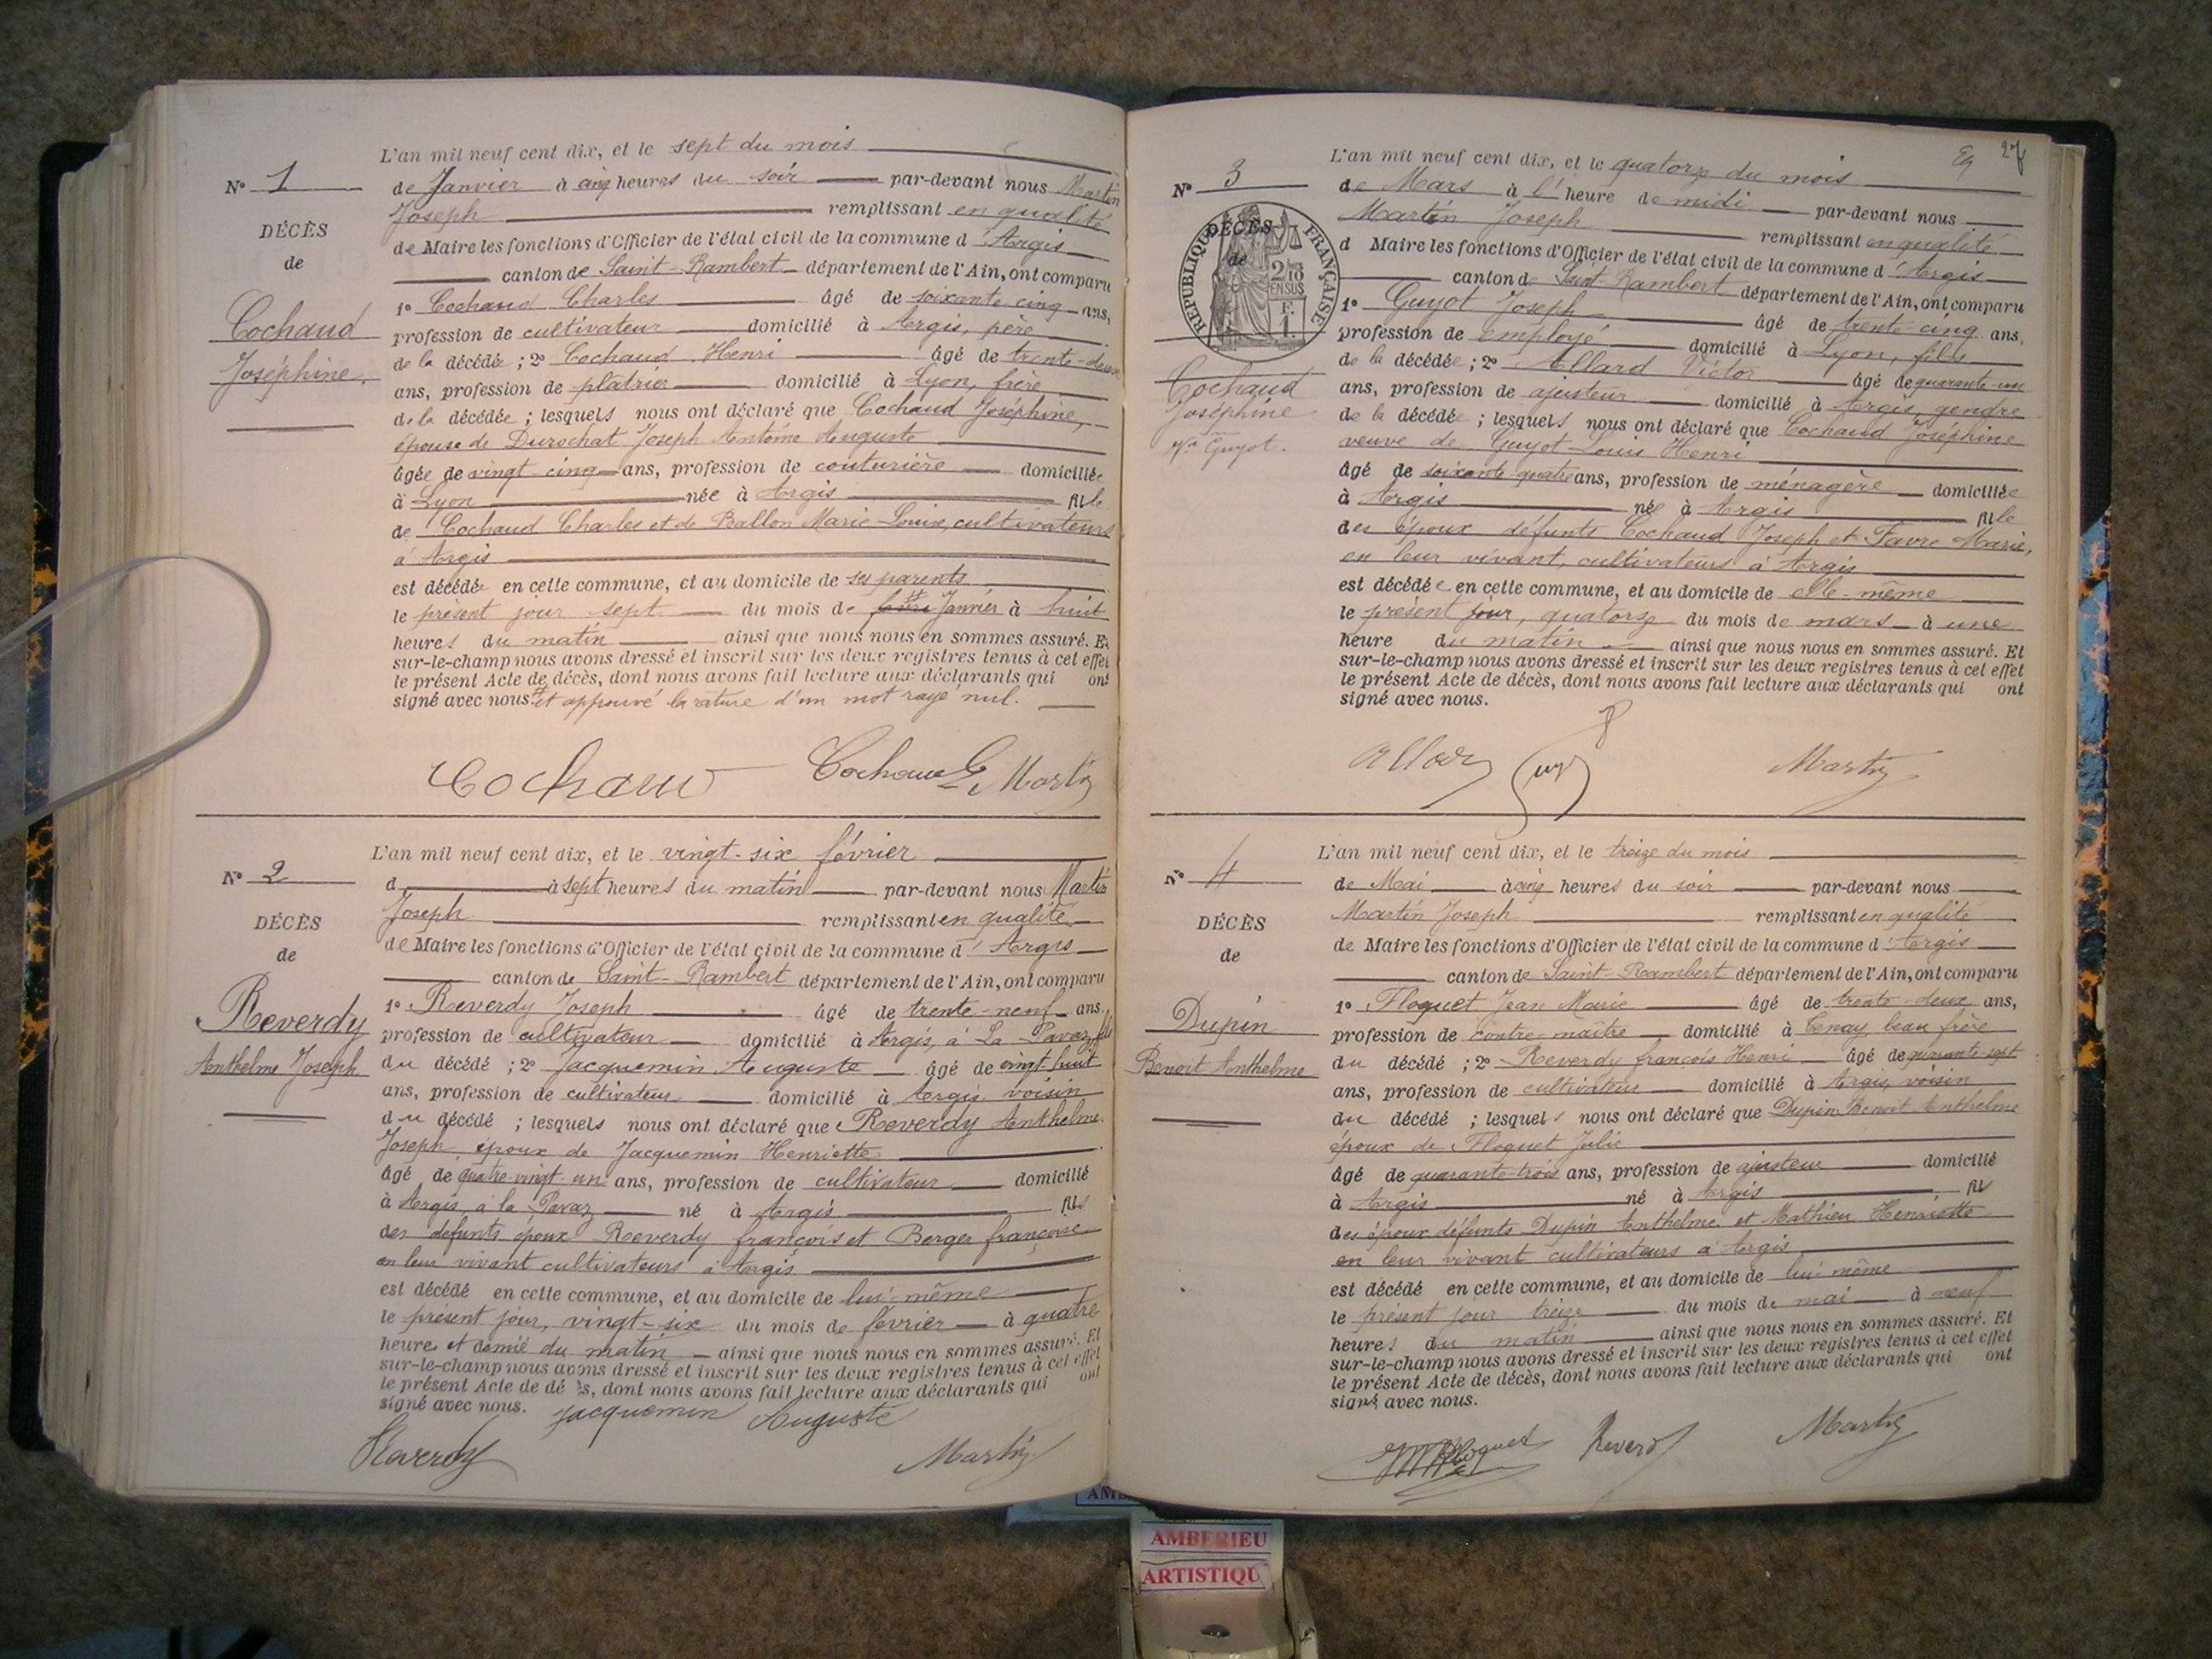 L'an mil neuf cent dix, et le sept du mois
N° 1
de Janvier à cinq heures du soir par-devant nous Martin
Joseph remplissant en qualité
DÉCÈS
de
de Maire les fonctions d'Officier de l'état civil de la commune d'Argis
canton de Saint-Rambert département de l'Ain, ont comparu
Cochaud
Joséphine.
1° Cochaud Charles âgé de soixante cinq ans,
profession de cultivateur domicilié à Argis, père
de la décédée ; 2° Cochaud Henri âgé de trente-deux
ans, profession de platrier domicilié à Lyon, frère
de la décédée ; lesquels nous ont déclaré que Cochaud Joséphine,
épouse de Durochat Joseph Antoine Auguste
âgée de vingt cinq ans, profession de couturière domiciliée
à Lyon née à Argis fille
de Cochaud Charles et de Ballon Marie-Louise, cultivateurs
à Argis
est décédée en cette commune, et au domicile de ses parents
le présent jour sept du mois de Janvier à huit
heures du matin ainsi que nous nous en sommes assuré. Et
sur-le-champ nous avons dressé et inscrit sur les deux registres tenus à cet effet
le présent Acte de décès, dont nous avons fait lecture aux déclarants qui ont
signé avec nous. et approuvé la rature d'un mot rayé nul.
Martin
L'an mil neuf cent dix, et le vingt-six février
N° 2
d à sept heures du matin par-devant nous Martin
Joseph remplissant en qualité
DÉCÈS
de
de Maire les fonctions d'Officier de l'état civil de la commune d'Argis
canton de Saint-Rambert département de l'Ain, ont comparu
Reverdy
Anthelme Joseph
1° Reverdy Joseph âgé de trente-neuf ans,
profession de cultivateur domicilié à Argis, à La Pavaz, fils
du décédé ; 2° Jacquemin Auguste âgé de vingt huit
ans, profession de cultivateur domicilié à Argis voisin
du décédé ; lesquels nous ont déclaré que Reverdy Anthelme
Joseph, époux de Jacquemin Henriette
âgé de quatre-vingt-un ans, profession de cultivateur domicilié
à Argis, à la Pavaz né à Argis fils
des défunts époux Reverdy françois et Berger françoise
en leur vivant cultivateurs à Argis
est décédé en cette commune, et au domicile de lui-même
le présent jour, vingt-six du mois de février à quatre
heures et demie du matin ainsi que nous nous en sommes assuré. Et
sur-le-champ nous avons dressé et inscrit sur les deux registres tenus à cet effet
le présent Acte de décès, dont nous avons fait lecture aux déclarants qui ont
signé avec nous. Jacquemin Auguste
Reverdy Martin
27
L'an mil neuf cent dix, et le quatorze du mois
N° 3
de Mars à l'heure de midi par-devant nous
Martin Joseph remplissant en qualité
DÉCÈS
de
RÉPUBLIQUE FRANÇAISE
d Maire les fonctions d'Officier de l'état civil de la commune d'Argis
canton de Saint-Rambert département de l'Ain, ont comparu
Cochaud
Joséphine
Vve Guyot.
1° Guyot Joseph âgé de trente-cinq ans,
profession de employé domicilié à Lyon, fils
de la décédée ; 2° Allard Victor âgé de quarante-un
ans, profession de ajusteur domicilié à Argis, gendre
de la décédée ; lesquels nous ont déclaré que Cochaud Joséphine
veuve de Guyot Louis Henri
âgé de soixante-quatre ans, profession de ménagère domiciliée
à Argis née à Argis fille
des époux défunts Cochaud Joseph et Favre Marie,
en leur vivant, cultivateurs à Argis
est décédée en cette commune, et au domicile de elle-même
le présent jour, quatorze du mois de mars à une
heure du matin ainsi que nous nous en sommes assuré. Et
sur-le-champ nous avons dressé et inscrit sur les deux registres tenus à cet effet
le présent Acte de décès, dont nous avons fait lecture aux déclarants qui ont
signé avec nous.
Martin
L'an mil neuf cent dix, et le treize du mois
N° 4
de Mai à cinq heures du soir par-devant nous
Martin Joseph remplissant en qualité
DÉCÈS
de
de Maire les fonctions d'Officier de l'état civil de la commune d'Argis
canton de Saint-Rambert département de l'Ain, ont comparu
Dupin
Benoit Anthelme
1° Floquet Jean Marie âgé de trente-deux ans,
profession de contre-maître domicilié à Tenay, beau frère
du décédé ; 2° Reverdy françois Henri âgé de quarante-sept
ans, profession de cultivateur domicilié à Argis, voisin
du décédé ; lesquels nous ont déclaré que Dupin Benoit Anthelme
époux de Floquet Julie
âgé de quarante-trois ans, profession de ajusteur domicilié
à Argis né à Argis fils
des époux défunts Dupin Anthelme et Mathieu Henriette
en leur vivant cultivateurs à Argis
est décédé en cette commune, et au domicile de lui-même
le présent jour treize du mois de mai à neuf
heures du matin ainsi que nous nous en sommes assuré. Et
sur-le-champ nous avons dressé et inscrit sur les deux registres tenus à cet effet
le présent Acte de décès, dont nous avons fait lecture aux déclarants qui ont
signé avec nous.
Martin
AMBERIEU
ARTISTIQU